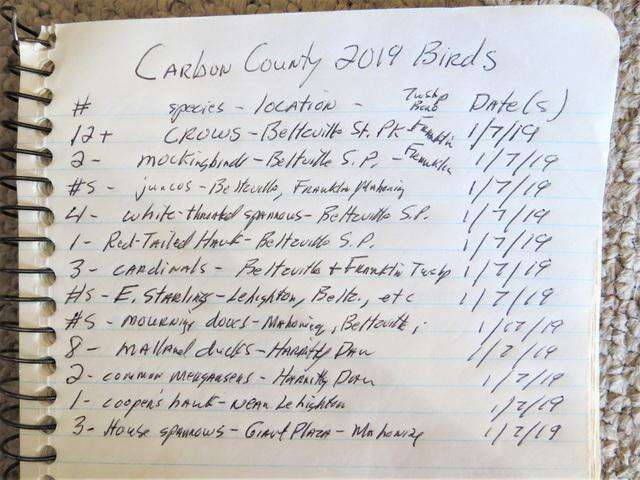 Carbon County 2019 Birds
# species - location - Twshp Boro Date(s)
12+ CROWS - Beltzville St. PK Franklin 1/7/19
2 - mockingbirds - Beltzville S.P. - Franklin 1/7/19
#S - juncos - Beltzville, Franklin, Mahoning 1/7/19
4 - white-throated sparrows - Beltzville S.P. 1/7/19
1 - Red-Tailed Hawk - Beltzville S.P. 1/7/19
3 - CARDINALS - Beltzville + Franklin Twshp 1/7/19
#S - E. Starlings - Lehighton, Beltz., etc 1/7/19
#S - mourning doves - Mahoning, Beltzville, 1/7/19
8 - mallard ducks - Harrity Dam 1/7/19
2 - common mergansers - Harrity Dam 1/7/19
1 - cooper's hawk - near Lehighton 1/7/19
3 - House sparrows - Plaza - Mahoning 1/7/19